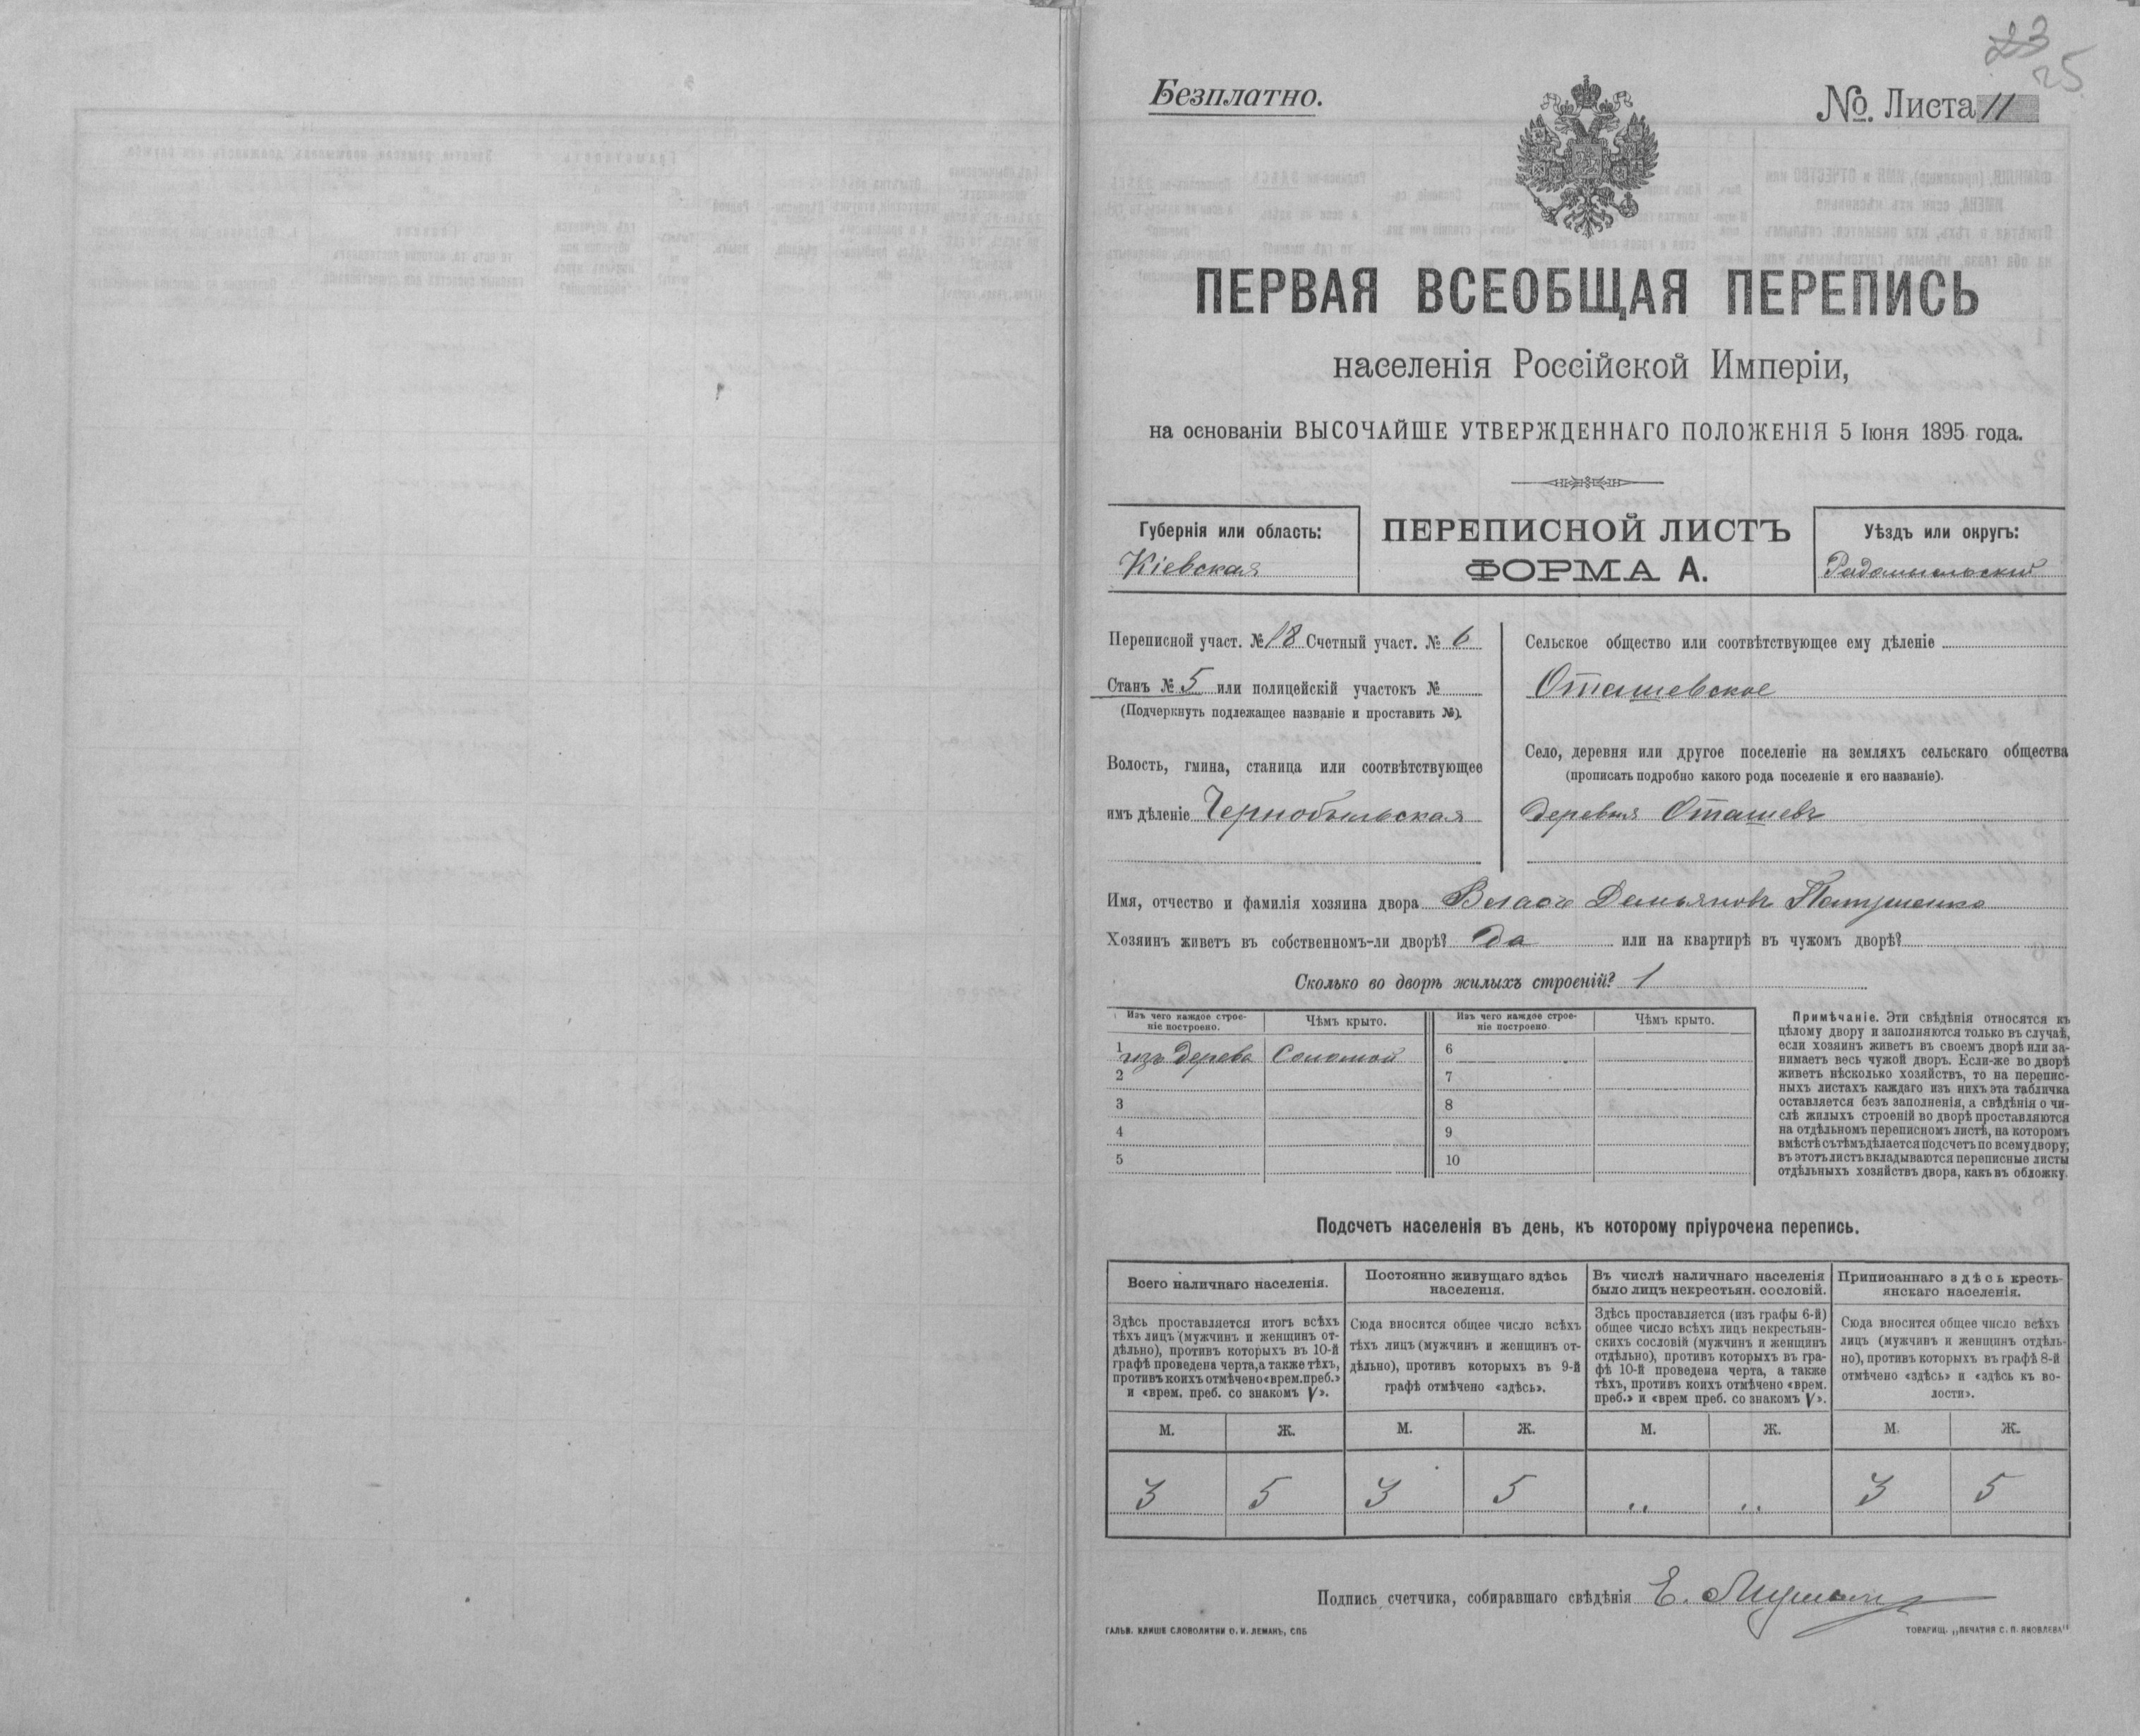 23
25
Безплатно.
№. Листа 11
ПЕРВАЯ ВСЕОБЩАЯ ПЕРЕПИСЬ
населенія Россійской Имперіи,
на основаніи ВЫСОЧАЙШЕ УТВЕРЖДЕННАГО ПОЛОЖЕНІЯ 5 Іюня 1895 года.
Губернія или область:
Кіевская
ПЕРЕПИСНОЙ ЛИСТЪ
ФОРМА А.
Уѣздъ или округъ:
Радомысльскій
Переписной участ. № 18 Счетный участ. № 6
Станъ № 5 или полицейскій участокъ №
(Подчеркнуть подлежащее названіе и проставить №).
Волость, гмина, станица или соотвѣтствующее
имъ дѣленіе Чернобыльская
Сельское общество или соотвѣтствующее ему дѣленіе
Оташевское
Село, деревня или другое поселеніе на земляхъ сельскаго общества
(прописать подробно какого рода поселеніе и его названіе).
деревня Оташевъ
Имя, отчество и фамилія хозяина двора Власъ Демьяновъ
Хозяинъ живетъ въ собственномъ-ли дворѣ? Да или на квартирѣ въ чужомъ дворѣ?
Сколько во дворѣ жилыхъ строеній? 1
Изъ чего каждое строе-
ніе построено.
Чѣмъ крыто.
Изъ чего каждое строе-
ніе построено.
Чѣмъ крыто.
1 изъ дерева Соломой
2
3
4
5
6
7
8
9
10
Примѣчаніе. Эти свѣдѣнія относятся къ
цѣлому двору и заполняются только въ случаѣ,
если хозяинъ живетъ въ своемъ дворѣ или за-
нимаетъ весь чужой дворъ. Если-же во дворѣ
живетъ нѣсколько хозяйствъ, то на перепис-
ныхъ листахъ каждаго изъ нихъ эта табличка
оставляется безъ заполненія, а свѣдѣнія о чи-
слѣ жилыхъ строеній во дворѣ проставляются
на отдѣльномъ переписномъ листѣ, на которомъ
вмѣстѣ съ тѣмъ дѣлается подсчетъ по всему двору;
въ этотъ листъ вкладываются переписные листы
отдѣльныхъ хозяйствъ двора, какъ въ обложку.
Подсчетъ населенія въ день, къ которому пріурочена перепись.
Всего наличнаго населенія.
Здѣсь проставляется итогъ всѣхъ
тѣхъ лицъ (мужчинъ и женщинъ от-
дѣльно), противъ которыхъ въ 10-й
графѣ проведена черта, а также тѣхъ,
противъ коихъ отмѣчено «врем. преб.»
и «врем. преб. со знакомъ V».
Постоянно живущаго здѣсь
населенія.
Сюда вносится общее число всѣхъ
тѣхъ лицъ (мужчинъ и женщинъ от-
дѣльно), противъ которыхъ въ 9-й
графѣ отмѣчено «здѣсь».
Въ числѣ наличнаго населенія
было лицъ некрестьян. сословій.
Здѣсь проставляется (изъ графы 6-й)
общее число всѣхъ лицъ некрестьян-
скихъ сословій (мужчинъ и женщинъ
отдѣльно), противъ которыхъ въ гра-
фѣ 10-й проведена черта, а также
тѣхъ, противъ коихъ отмѣчено «врем.
преб.» и «врем преб. со знакомъ V».
Приписаннаго здѣсь кресть-
янскаго населенія.
Сюда вносится общее число всѣхъ
лицъ (мужчинъ и женщинъ отдѣль-
но), противъ которыхъ въ графѣ 8-й
отмѣчено «здѣсь» и «здѣсь къ во-
лости».
М. Ж. М. Ж. М. Ж. М. Ж.
3 5 3 5 „ „ 3 5
Подпись счетчика, собиравшаго свѣдѣнія Е.
ГАЛЬВ. КЛИШЕ СЛОВОЛИТНИ О. И. ЛЕМАНЪ, СПБ
ТОВАРИЩ. „ПЕЧАТНЯ С. П. ЯКОВЛЕВА"